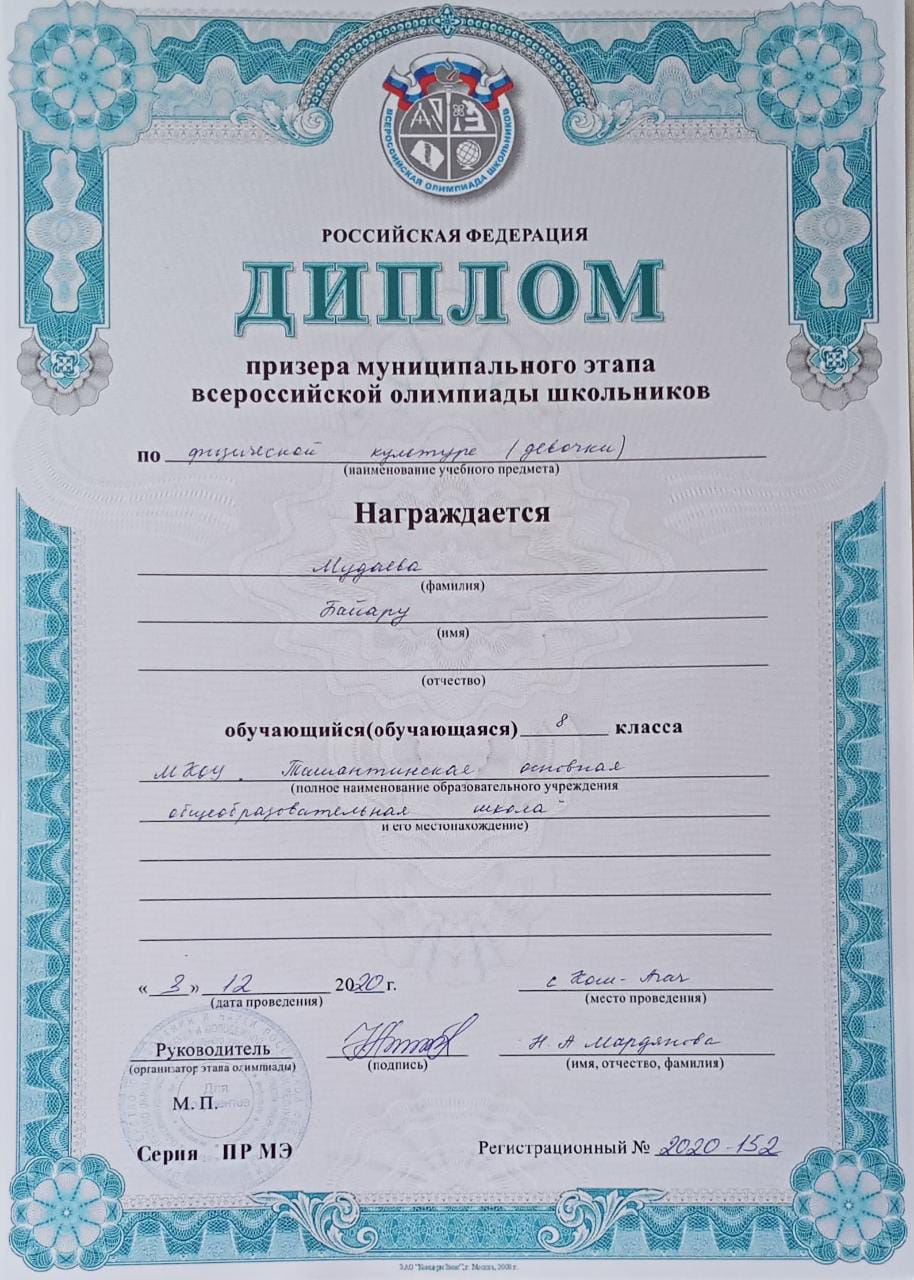 ВСЕРОССИЙСКАЯ ОЛИМПИАДА ШКОЛЬНИКОВ
РОССИЙСКАЯ ФЕДЕРАЦИЯ
ДИПЛОМ
призера муниципального этапа
всероссийской олимпиады школьников
по физической культуре (девочки)
(наименование учебного предмета)
Награждается
Мудаева
(фамилия)
Байару
(имя)
(отчество)
обучающийся(обучающаяся) 8 класса
МКОУ "Ташантинская основная
(полное наименование образовательного учреждения
общеобразовательная школа"
и его местонахождение)
« 3 » 12 2020 г. с Кош-Агач
(дата проведения) (место проведения)
Руководитель Н. А Мардянова
(организатор этапа олимпиады) (подпись) (имя, отчество, фамилия)
Для
М. П.
Серия ПР МЭ Регистрационный № 2020-152